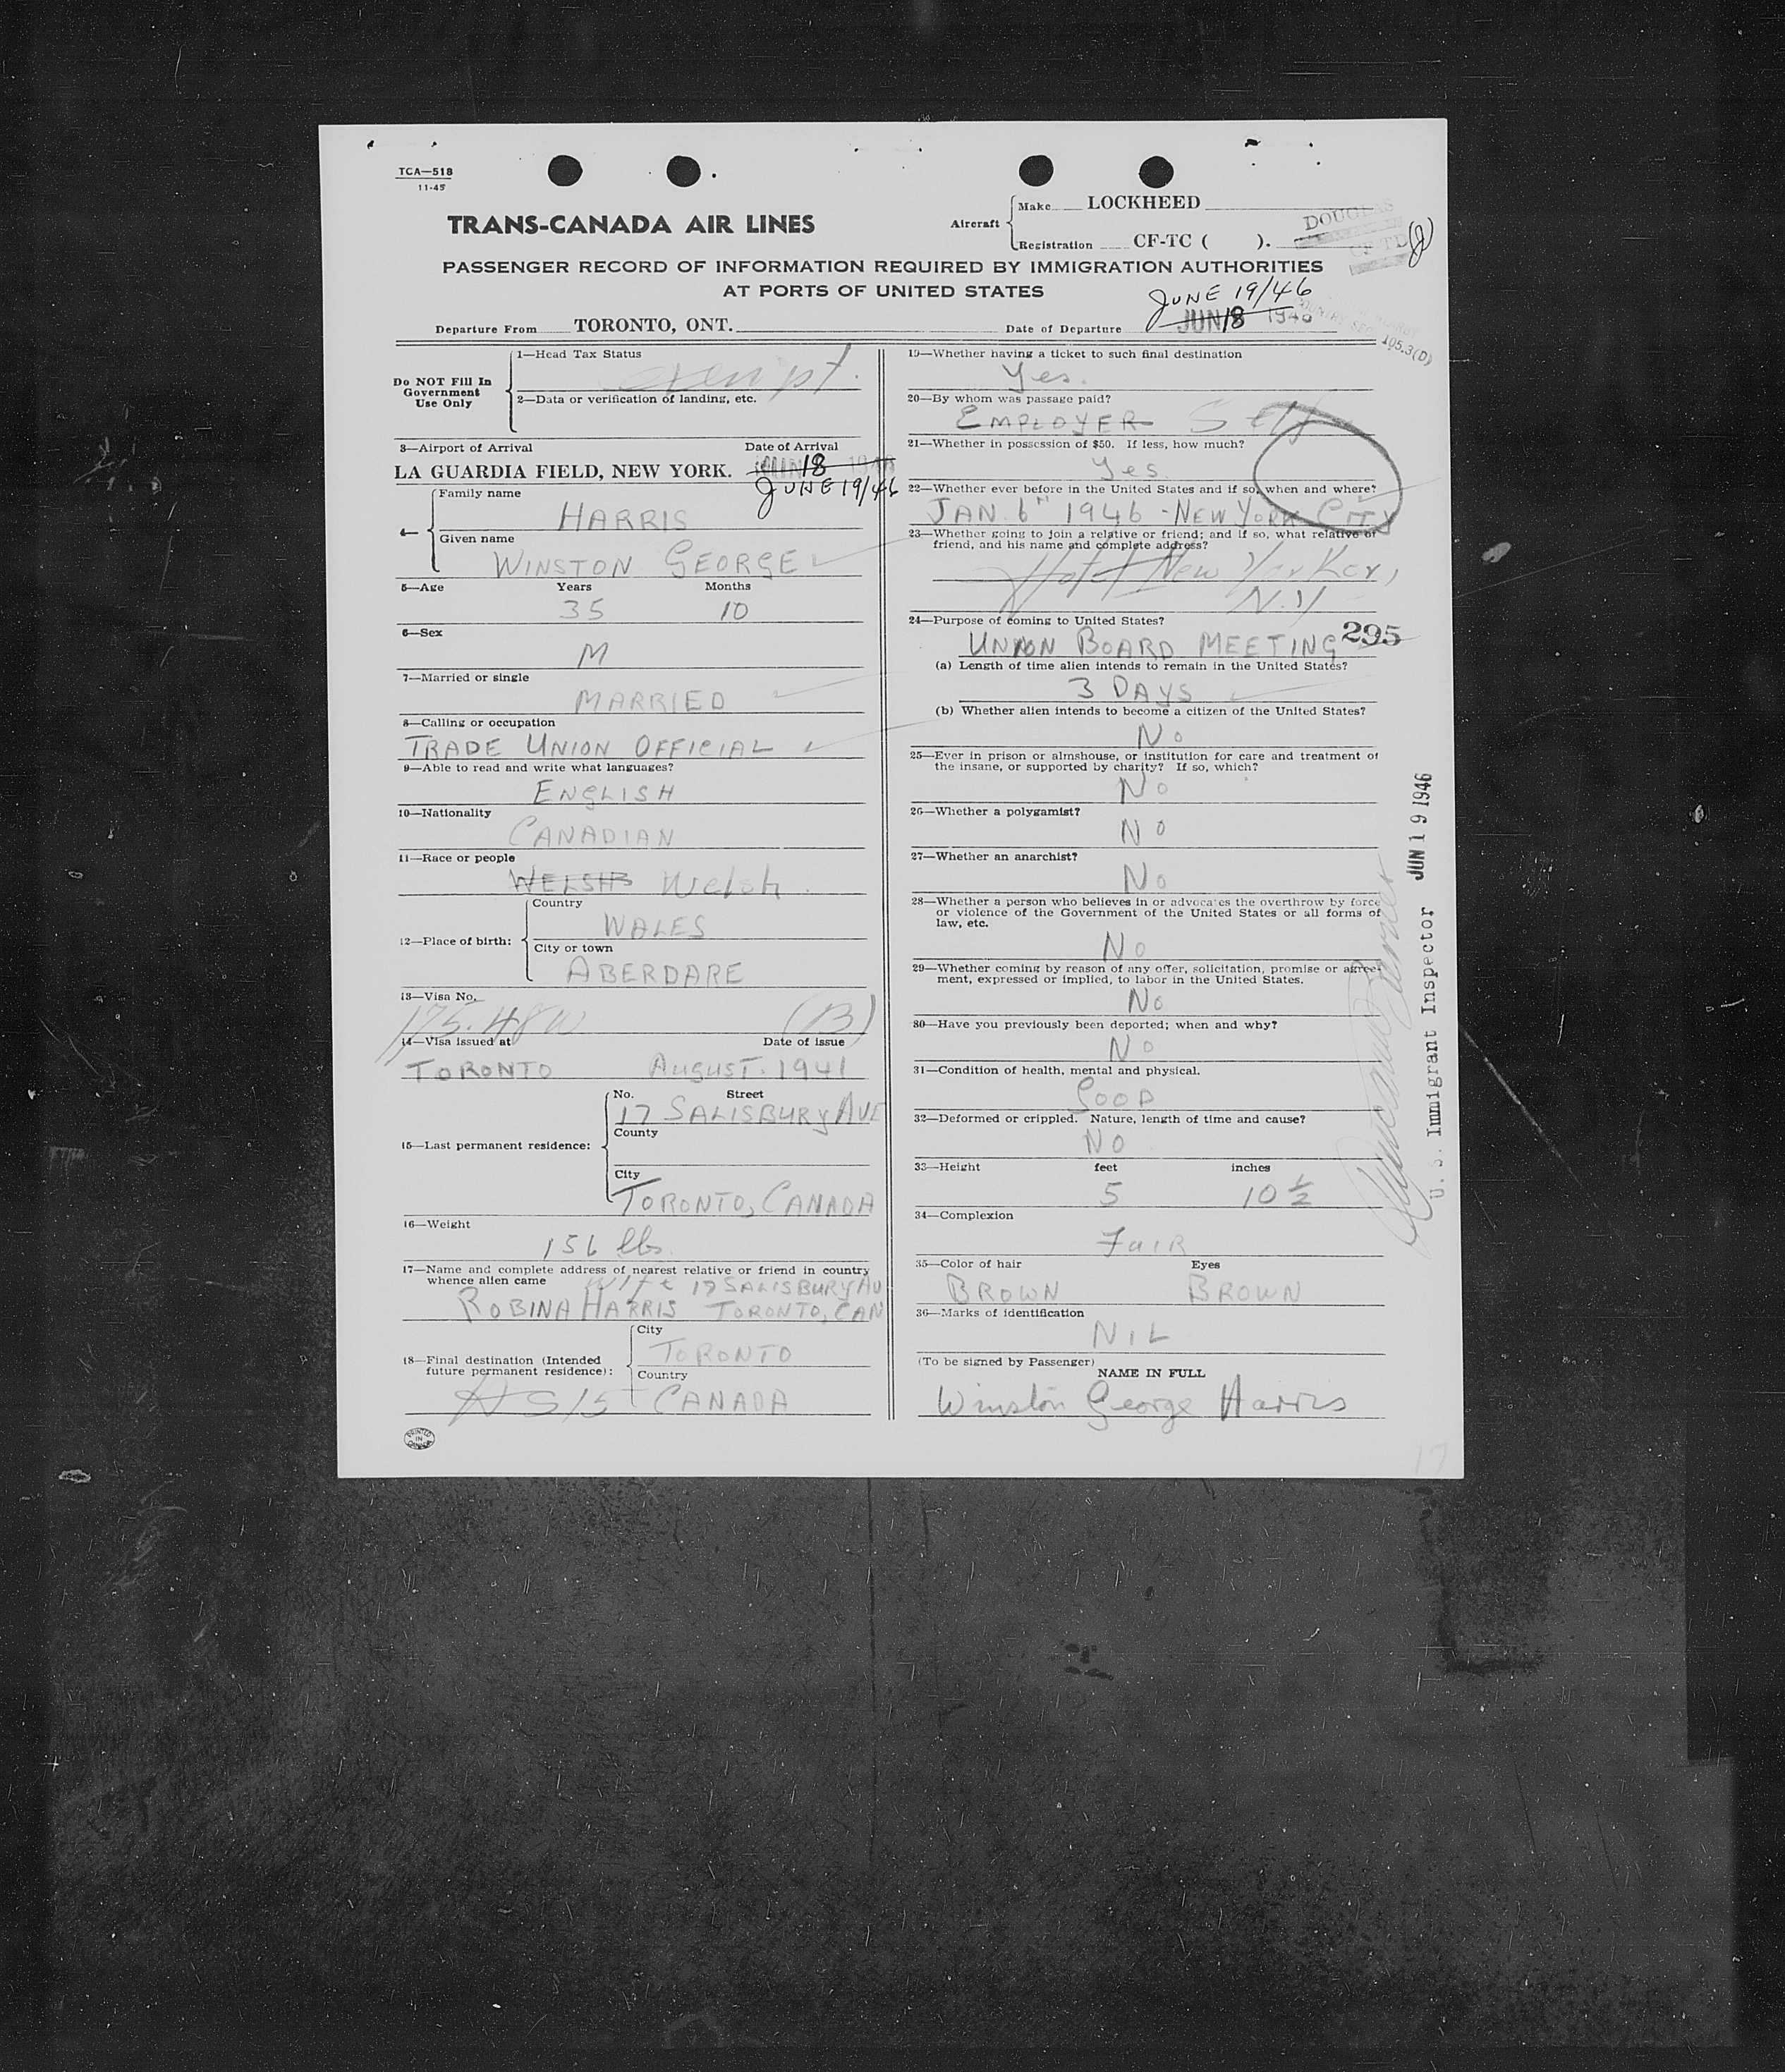 TCA—518
11-45
TRANS-CANADA AIR LINES
Aircraft
Make LOCKHEED
Registration CF-TC ( ).
DOUGLAS
PASSENGER RECORD OF INFORMATION REQUIRED BY IMMIGRATION AUTHORITIES
AT PORTS OF UNITED STATES
JUNE 19/46
Departure From TORONTO, ONT.
Date of Departure JUN 18 1946
195.3(D)
Do NOT Fill In
Government
Use Only
1—Head Tax Status
exempt.
2—Data or verification of landing, etc.
3—Airport of Arrival Date of Arrival
LA GUARDIA FIELD, NEW YORK. JUN 18 1946
JUNE 19/46
Family name
HARRIS
Given name
WINSTON GEORGE
5—Age Years Months
35 10
6—Sex
M
7—Married or single
MARRIED
8—Calling or occupation
TRADE UNION OFFICIAL
9—Able to read and write what languages?
ENGLISH
10—Nationality
CANADIAN
11—Race or people
WELSH Welsh
12—Place of birth:
Country
WALES
City or town
ABERDARE
13—Visa No.
(B)
14—Visa issued at Date of issue
TORONTO AUGUST. 1941
15—Last permanent residence:
No. Street
17 SALISBURY AVE
County
City
TORONTO, CANADA
16—Weight
156 lbs.
17—Name and complete address of nearest relative or friend in country
whence alien came wife 17 SALISBURY AV
ROBINA HARRIS TORONTO, CAN
18—Final destination (Intended
future permanent residence):
City
TORONTO
Country
CANADA
PRINTED
IN
CANADA
19—Whether having a ticket to such final destination
Yes.
20—By whom was passage paid?
EMPLOYER Self
21—Whether in possession of $50. If less, how much?
Yes
22—Whether ever before in the United States and if so, when and where?
JAN 6TH 1946 - NEW YORK CITY
23—Whether going to join a relative or friend; and if so, what relative or
friend, and his name and complete address?
Hotel New Yorker,
N.Y
24—Purpose of coming to United States?
UNION BOARD MEETING 295
(a) Length of time alien intends to remain in the United States?
3 DAYS
(b) Whether alien intends to become a citizen of the United States?
No
25—Ever in prison or almshouse, or institution for care and treatment of
the insane, or supported by charity? If so, which?
No
26—Whether a polygamist?
No
27—Whether an anarchist?
No
28—Whether a person who believes in or advocates the overthrow by force
or violence of the Government of the United States or all forms of
law, etc.
No
29—Whether coming by reason of any offer, solicitation, promise or agree-
ment, expressed or implied, to labor in the United States.
No
30—Have you previously been deported; when and why?
No
31—Condition of health, mental and physical.
GOOD
32—Deformed or crippled. Nature, length of time and cause?
NO
33—Height feet inches
5 10 ½
34—Complexion
FAIR
35—Color of hair Eyes
BROWN BROWN
36—Marks of identification
NIL
(To be signed by Passenger)
NAME IN FULL
Winston George Harris
U. S. Immigrant Inspector JUN 19 1946
17